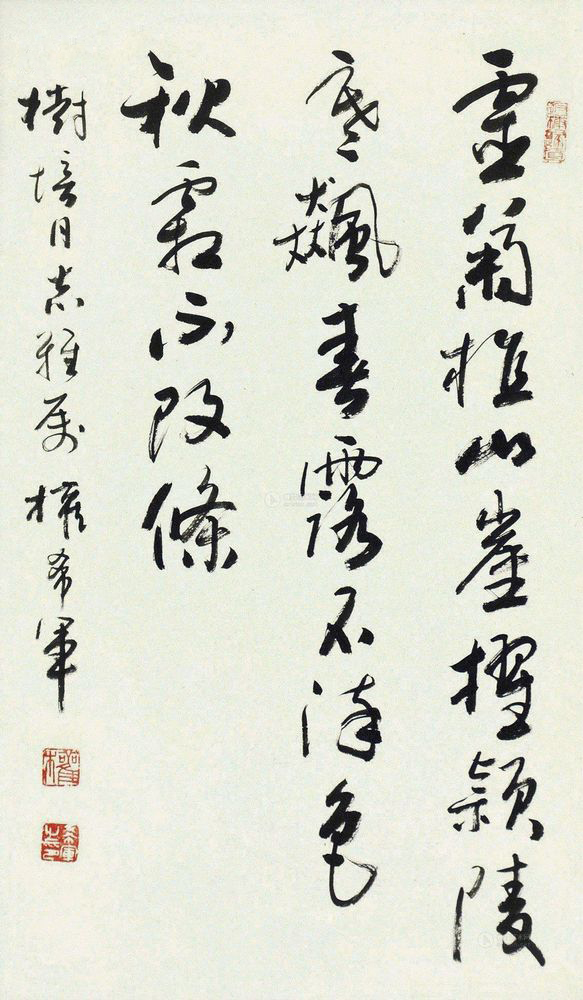 靈菊植山崖擢穎陵
寒飆春露不染色
秋霜不改條
樹培同志雅属權希軍